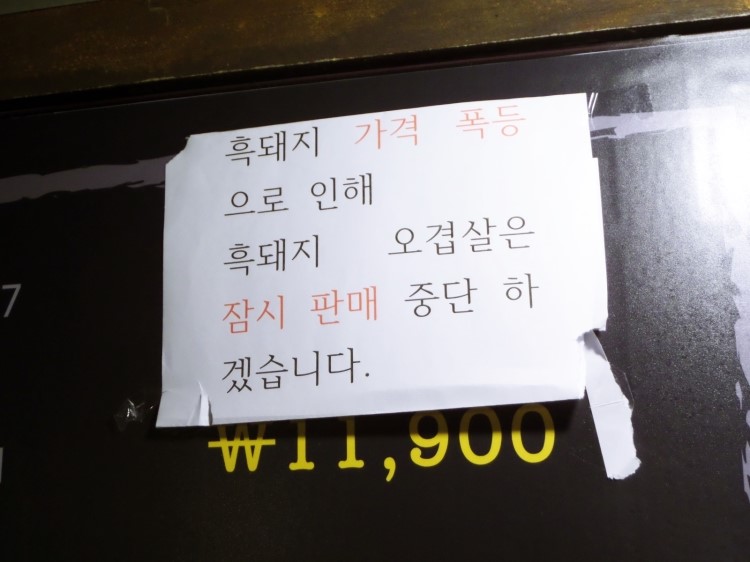 흑돼지 가격 폭등
으로 인해
흑돼지 오겹살은
잠시 판매 중단 하
겠습니다.
7
₩11,900